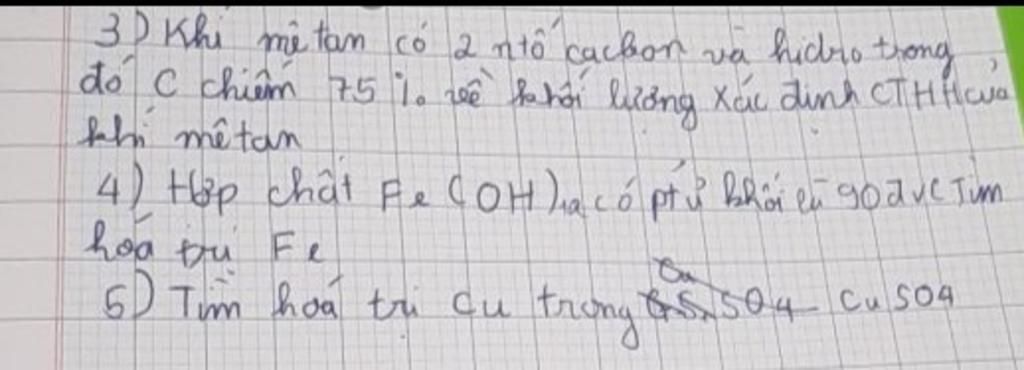 3) Khí mêtan có 2 ntố cacbon và hidro trong
đó C chiếm 75 % về khối lượng xác định CTHH của
khí mêtan
4) Hợp chất Fe(OH)a có ptử khối là 90 đvc Tìm
hoá trị Fe
5) Tìm hoá trị Cu trong CuSO4